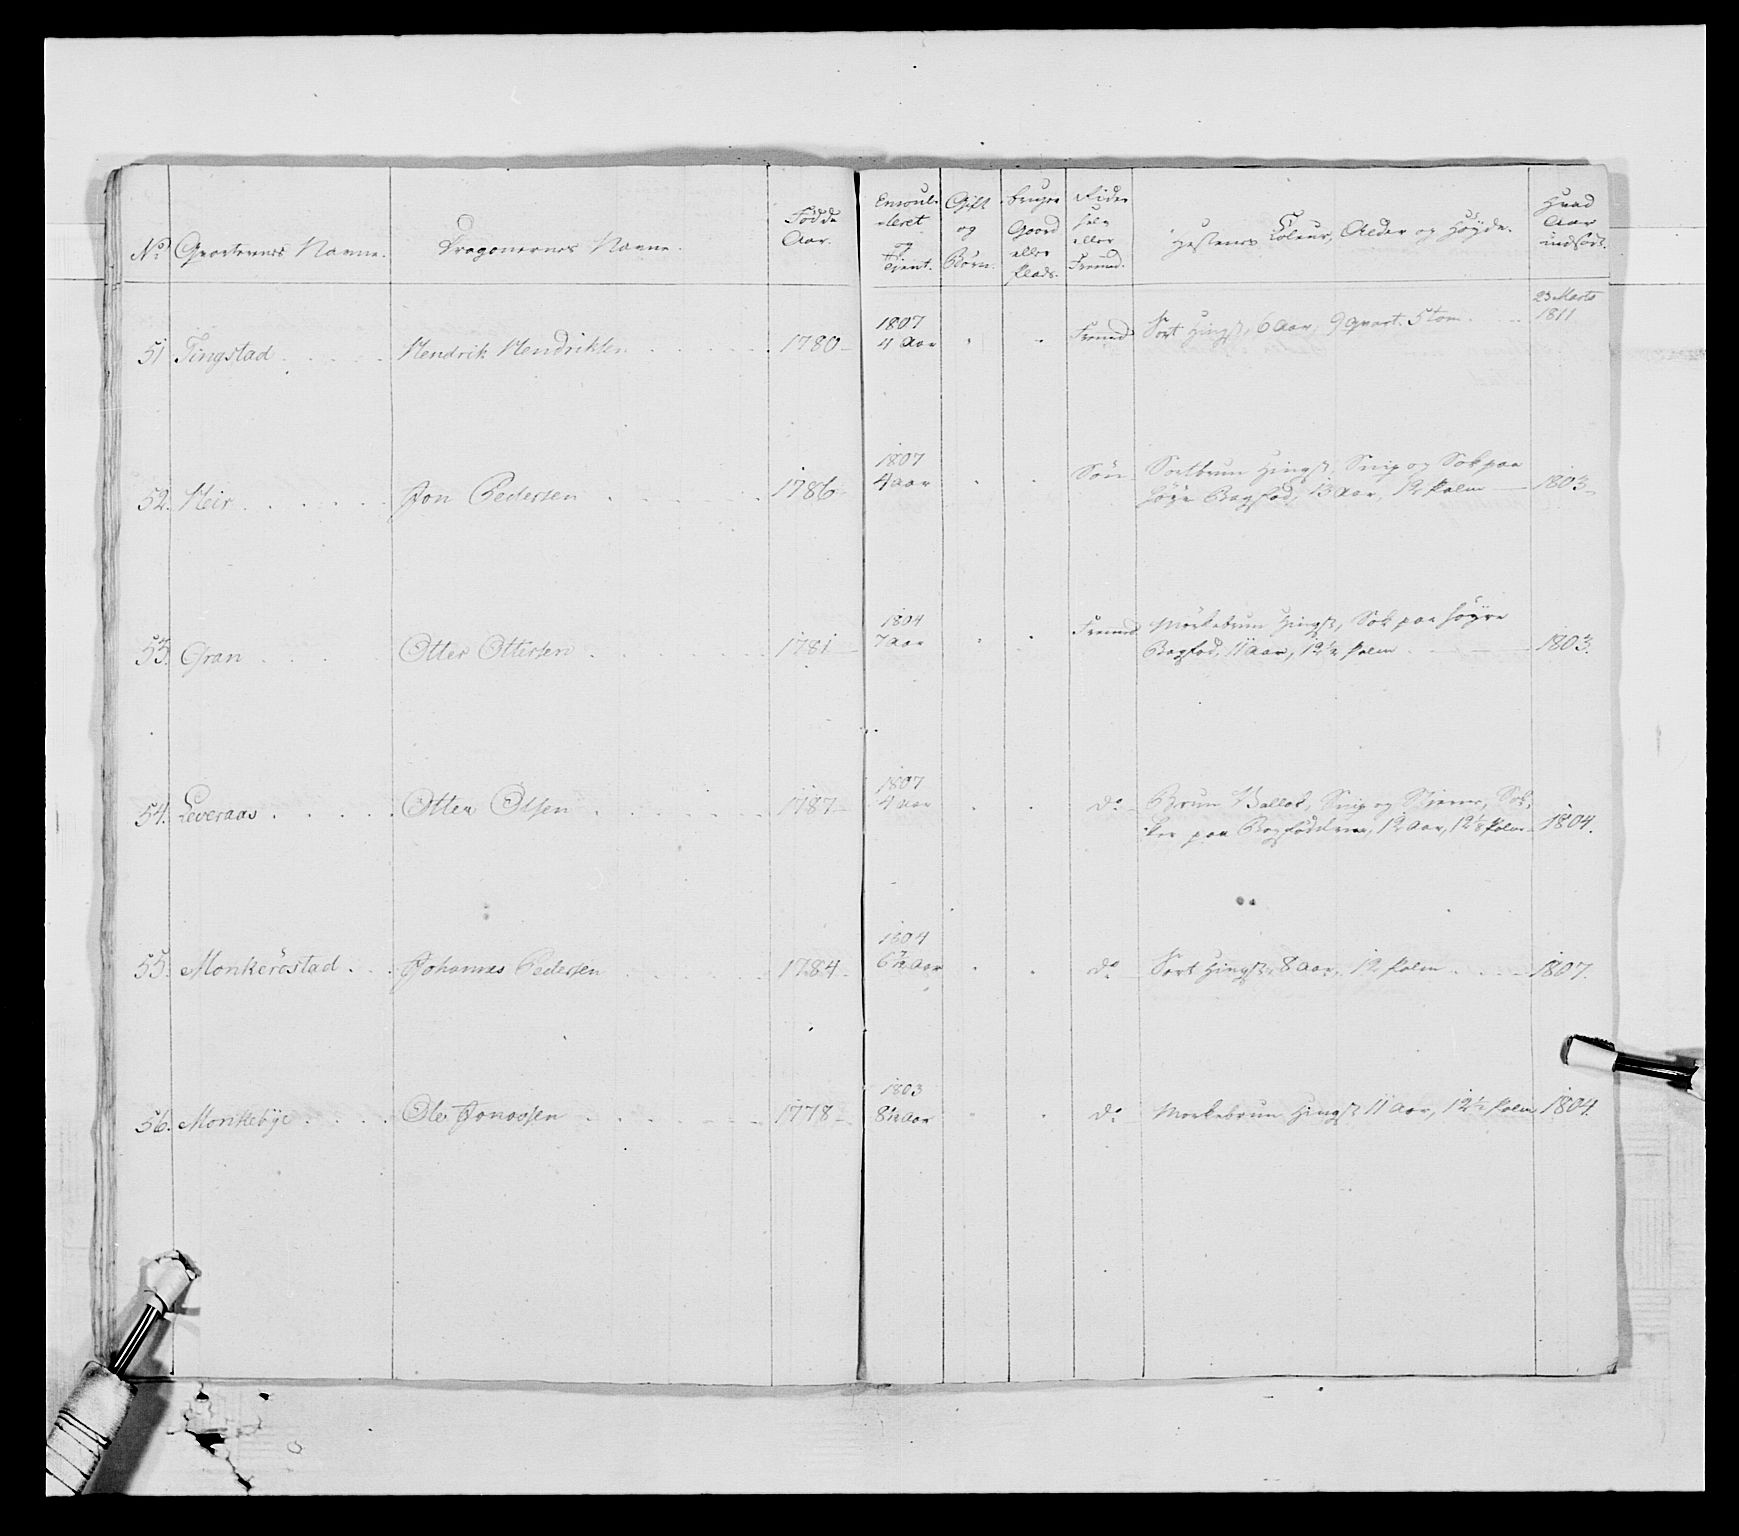 No Qvarterenes Navne. Dragonernes Navne. Fødde Aar. Enroul-leret og Tient. Gift og Børn. bruger Gaard eller Plads. Rider selv eller Fremmed. Hestenes Couleur, Alder og Høyde. Hvad Aar indført.
51 Tingstad Hendrik Hendriksen 1780 1807 4 Aar Fremed Sort Hingst, 6 Aar, 9 qvart. 5 tom 23 Marts 1811
52. Heir Jon Pedersen 1786 1807 4 Aar Søn Sortbrun Hingst, Snip og Sok paa
høyr Bagfod, 13 Aar, 12 Palm 1803
53. Gran Otter Ottersen 1781 1804 7 Aar Fremed Mørkebrun Hingst, Sok paa høyre
Bagfod, 11 Aar, 12½ Palm 1803.
54. Leveraas Otter Olsen 1787 1807 4 Aar do Brun Vallak, Snip og Stierne, Sok-
ker paa Bagfødderne, 12 Aar, 12⅛ Palm 1804.
55. Monkerøstad Johannes Pedersen 1784 1804 6½ Aar do Sort Hingst, 8 Aar, 12 Palm 1807.
56. Monkebye Ole Jonassen 1778 1803 8½ Aar do Mørkebrun Hingst 11 Aar, 12½ Palm 1804.